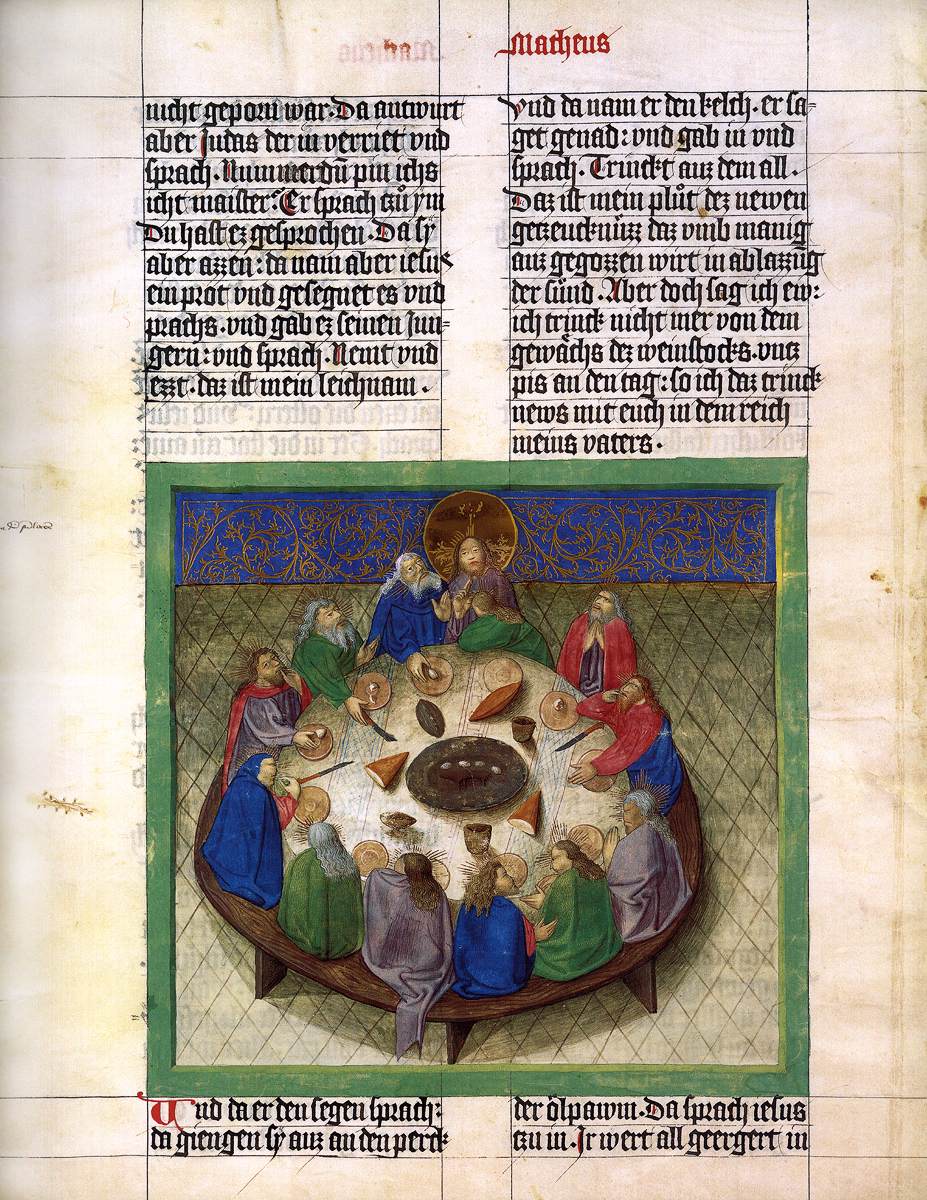 Matheus
nicht geporn war. Da antwurt
aber Judas der in verriet vnd
sprach. Nummerdū pin ichs
icht maister. Er sprach tzů ym
Du hast ez gesprochen. Da sÿ
aber azzen: da nam aber iesus
ein prot vnd gesegnet es vnd
prachs. vnd gab ez seinen Jun=
gern: vnd sprach. Nemt vnd
ezzt. daz ist mein leichnam.
Vnd da nam er den kelch. er sa=
get genad: vnd gab in vnd
sprach. Trinckt auz dem all.
Daz ist mein plůt dez newen
getzeucknüzz daz vmb manig
auz gegozzen wirt in ablazzūg
der sünd. Aber doch sag ich ew:
ich trinck nicht mer von dem
gewächs dez weinstocks. vntz
pis an den tag: so ich daz trinck
news mit euch in dem reich
meins vaters.
Und da er den segen sprach:
da giengen sÿ auz an den perck
der ölpawm. Da sprach iesus
tzu in. Jr wert all geergert in